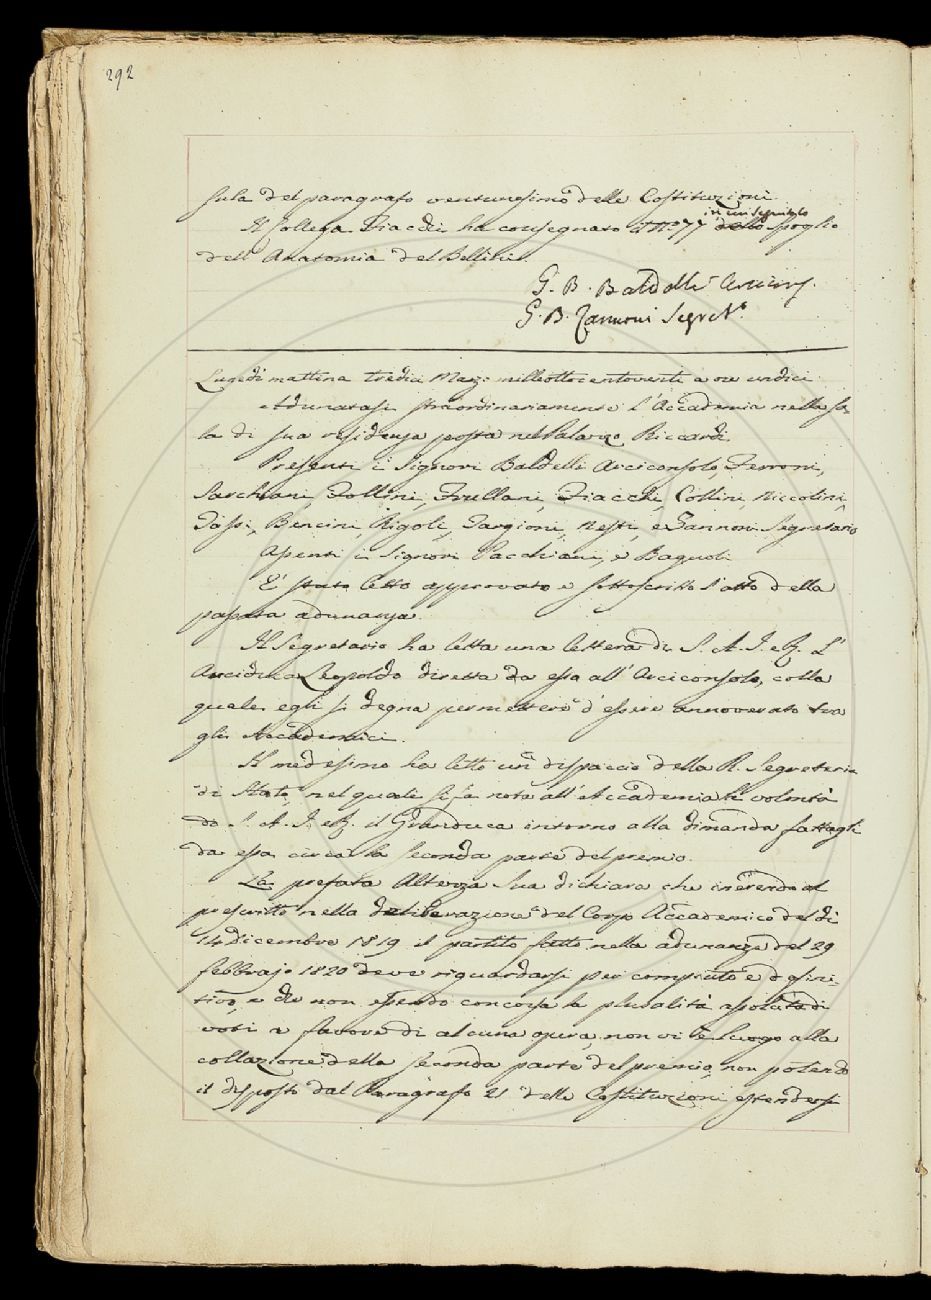 292
sula del paragrafo ventunesimo delle Costituzioni.
Il Collega Fiacchi ha consegnato il N° 77 dello in un segnato spoglio
dell'Anatomia del Bellini.
G. B. Baldelli Arcicons.
G. B. Zannoni Segret°.
Lunedì mattina tredici Marzo milleottocentoventi a ore undici
Adunatasi straordinariamente l'Accademia nella sa-
la di sua residenza posta nel Palazzo Riccardi.
Presenti i Signori Baldelli Arciconsolo, Ferroni,
Sarchiani, Follini, Frullani, Fiacchi, Collini, Niccolini,
Tassi, Bencini, Rigoli, Targioni, Nesti, e Zannoni Segretario
Assenti i Signori Pacchiani, e Bagnoli
E' stato letto approvato e sottoscritto l'atto della
passata adunanza.
Il Segretario ha letta una lettera di S. A. I. e R. L'
Arciduca Leopoldo diretta da essa all'Arciconsolo, colla
quale egli si degna permettere d'essere annoverato tra
gli Accademici.
Il medesimo ha letto un dispaccio della R. Segreteria
di Stato, nel quale si fa nota all'Accademia la volontà
di S. A. I. e R. il Granduca intorno alla dimanda fattagli
da essa circa la seconda parte del premio.
La prefata Altezza Sua dichiara che inerendo al
prescritto nella deliberazione del Corpo Accademico del dì
14 dicembre 1819 il partito fatto nella adunanza del 29
febbrajo 1820 deve riguardarsi per compiuto e defini-
tivo, e che non essendo concorsa la pluralità assoluta di
voti a favore di alcuna opera, non vi è luogo alla
collazione della seconda parte del premio, non potendo
il disposto dal Paragrafo 21 delle Costituzioni estendersi